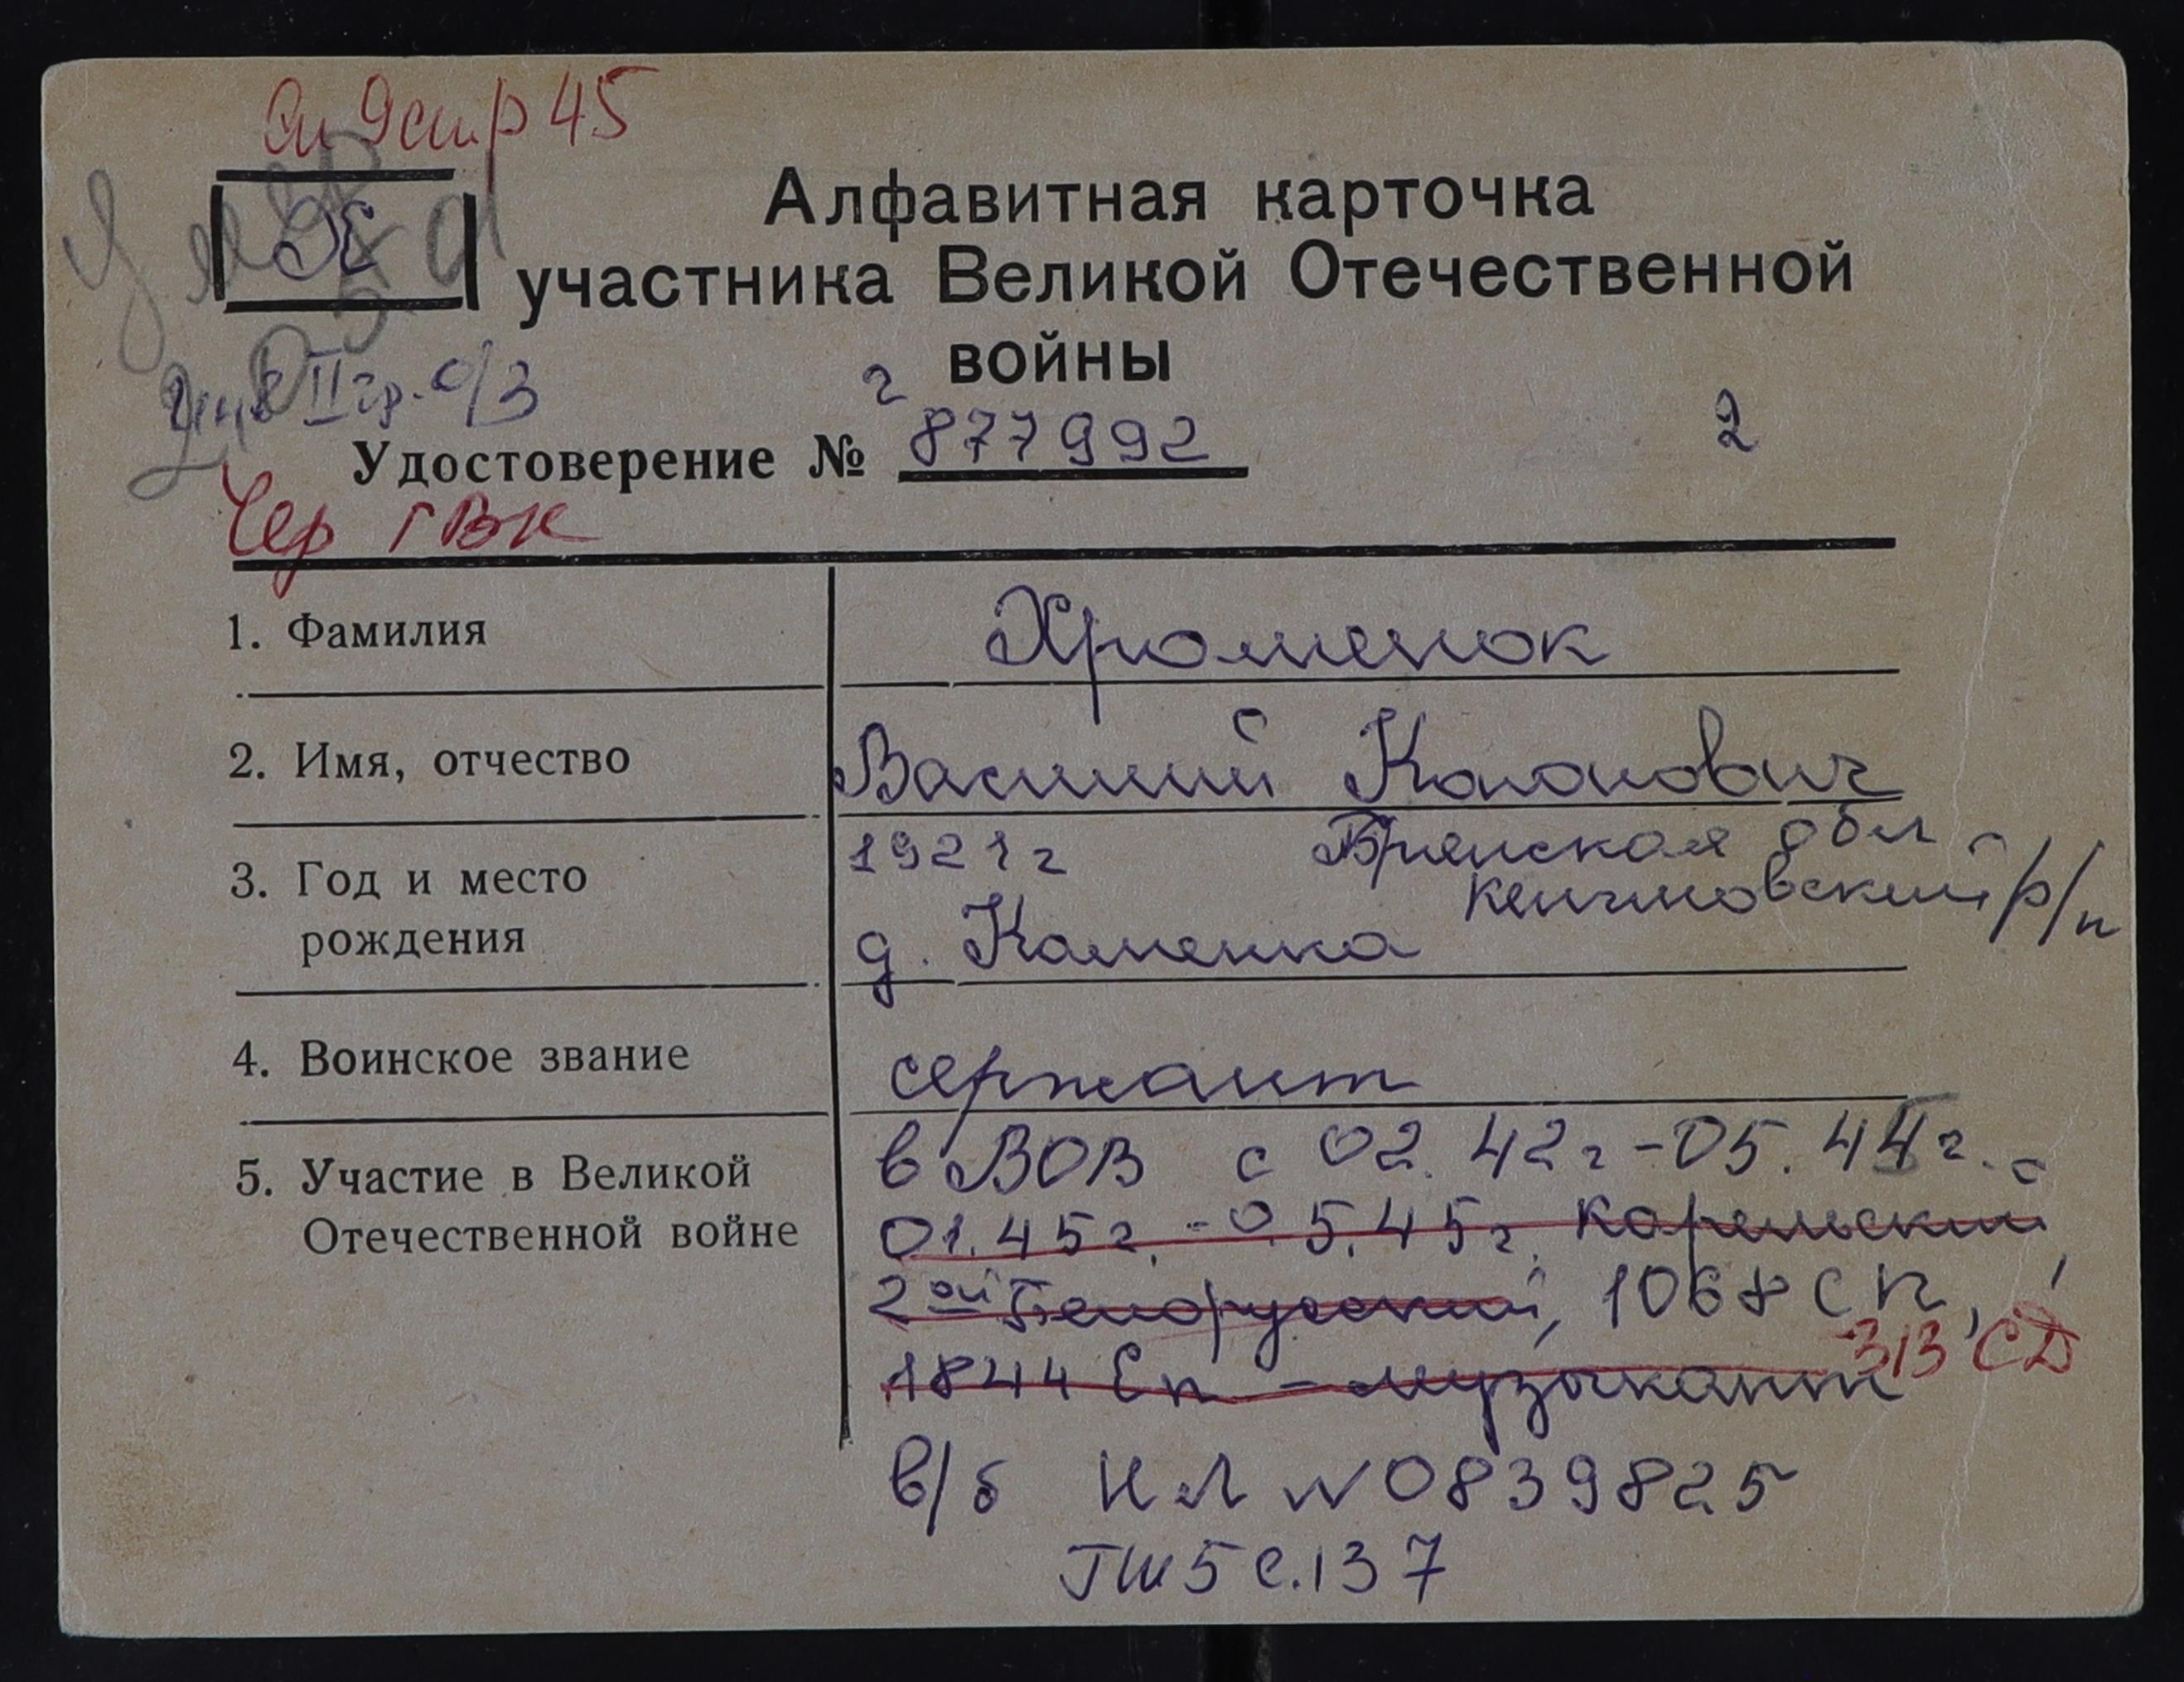 Оп 9 стр 45
Алфавитная карточка
Х
участника Великой Отечественной
войны
Инв II гр. о/з
г
2
Удостоверение № 877992
Чер ГВК
1. Фамилия
Хроменок
2. Имя, отчество
Василий Кононович
3. Год и место
рождения
1921г Брянская обл
р/н
д. Каменка
4. Воинское звание
сержант
5. Участие в Великой
Отечественной войне
в ВОВ с 02.42г-05.44г. с
01.45г.-05.45г. Карельский,
2ой Белорусский, 1068 СП,
313 СД
1844 Еп - музыкант
в/б НЛ N 0839825
ТШ5 с.137